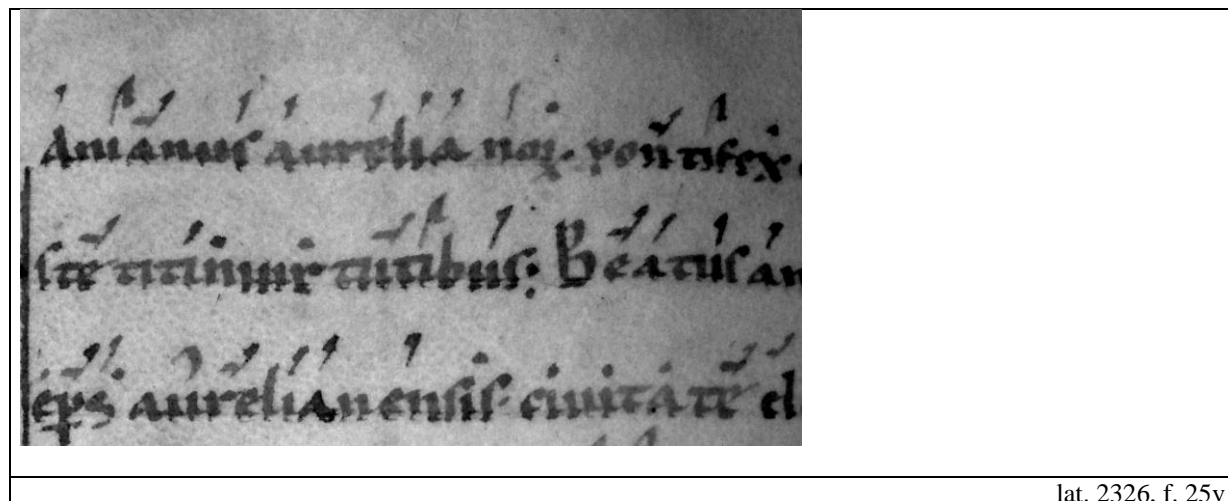 Anianus aurelianoꝝ. pontifex
stetit in uirtutibus: Beatus an
ep̄s aurelianensis. ciuitatē
lat. 2326, f. 25v